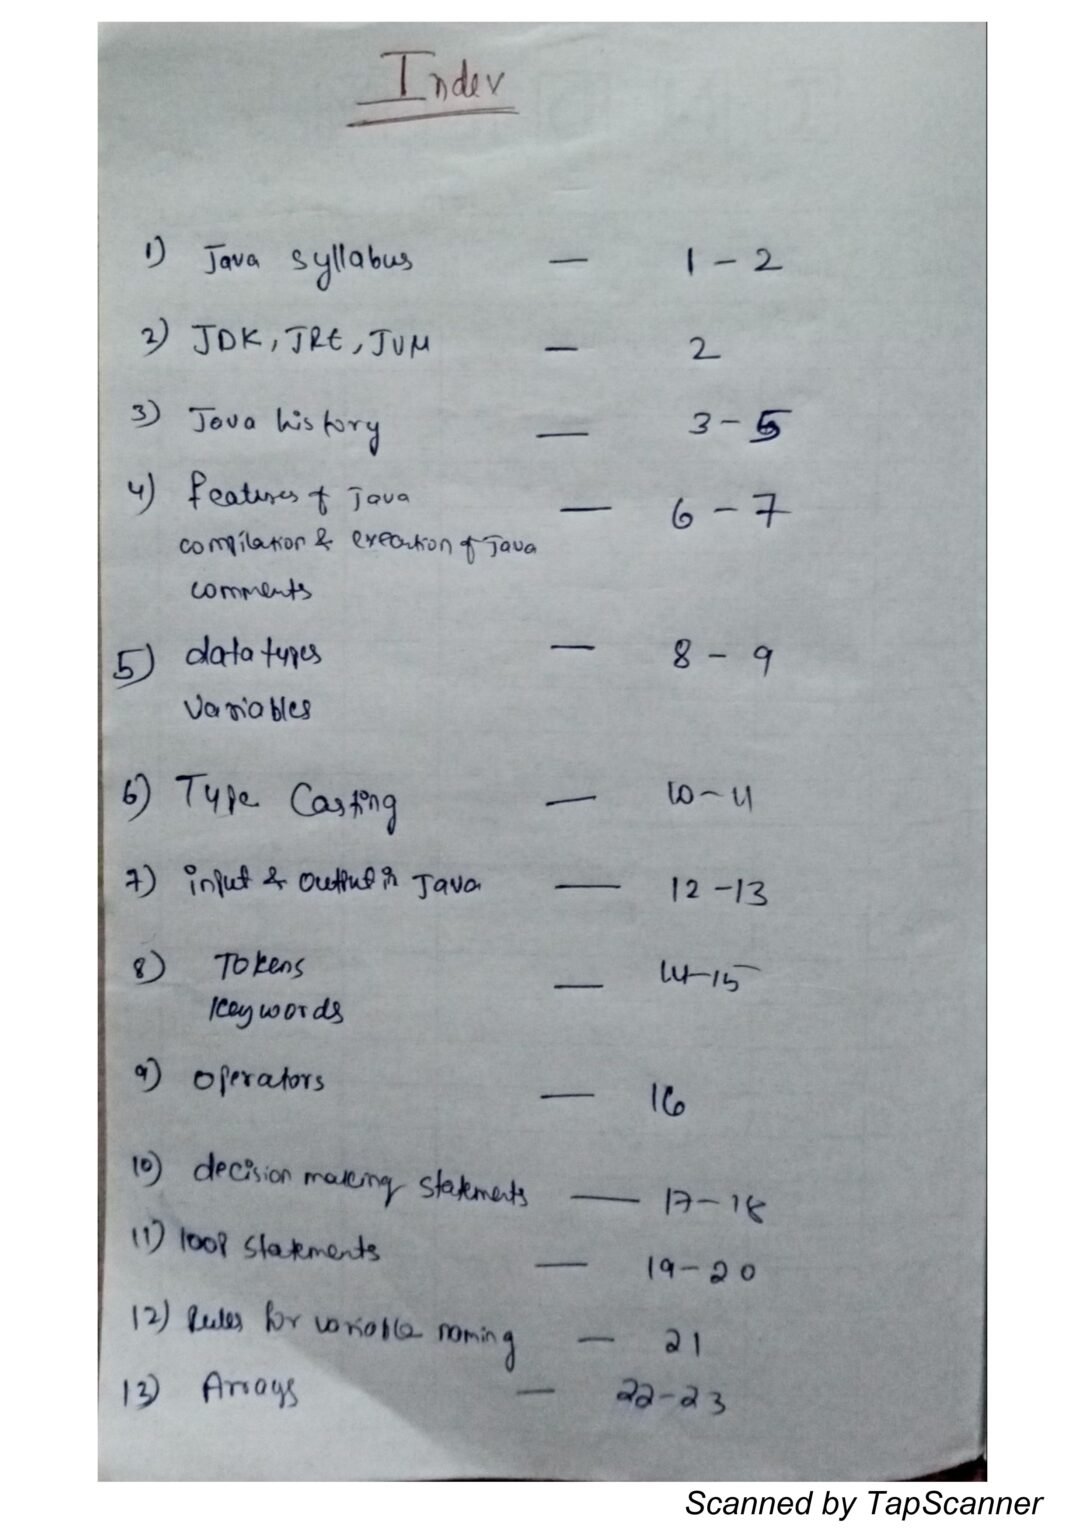 Index
1) Java syllabus — 1 - 2
2) JDK, JRE, JVM — 2
3) Java history — 3 - 5
4) features of Java — 6 - 7
compilation & execution of Java
comments
5) data types — 8 - 9
Variables
6) Type Casting — 10 - 11
7) input & output in Java — 12 - 13
8) Tokens — 14 - 15
Keywords
9) operators — 16
10) decision making statements — 17 - 18
11) loop statements — 19 - 20
12) Rules for variable naming — 21
13) Arrays — 22 - 23
Scanned by TapScanner